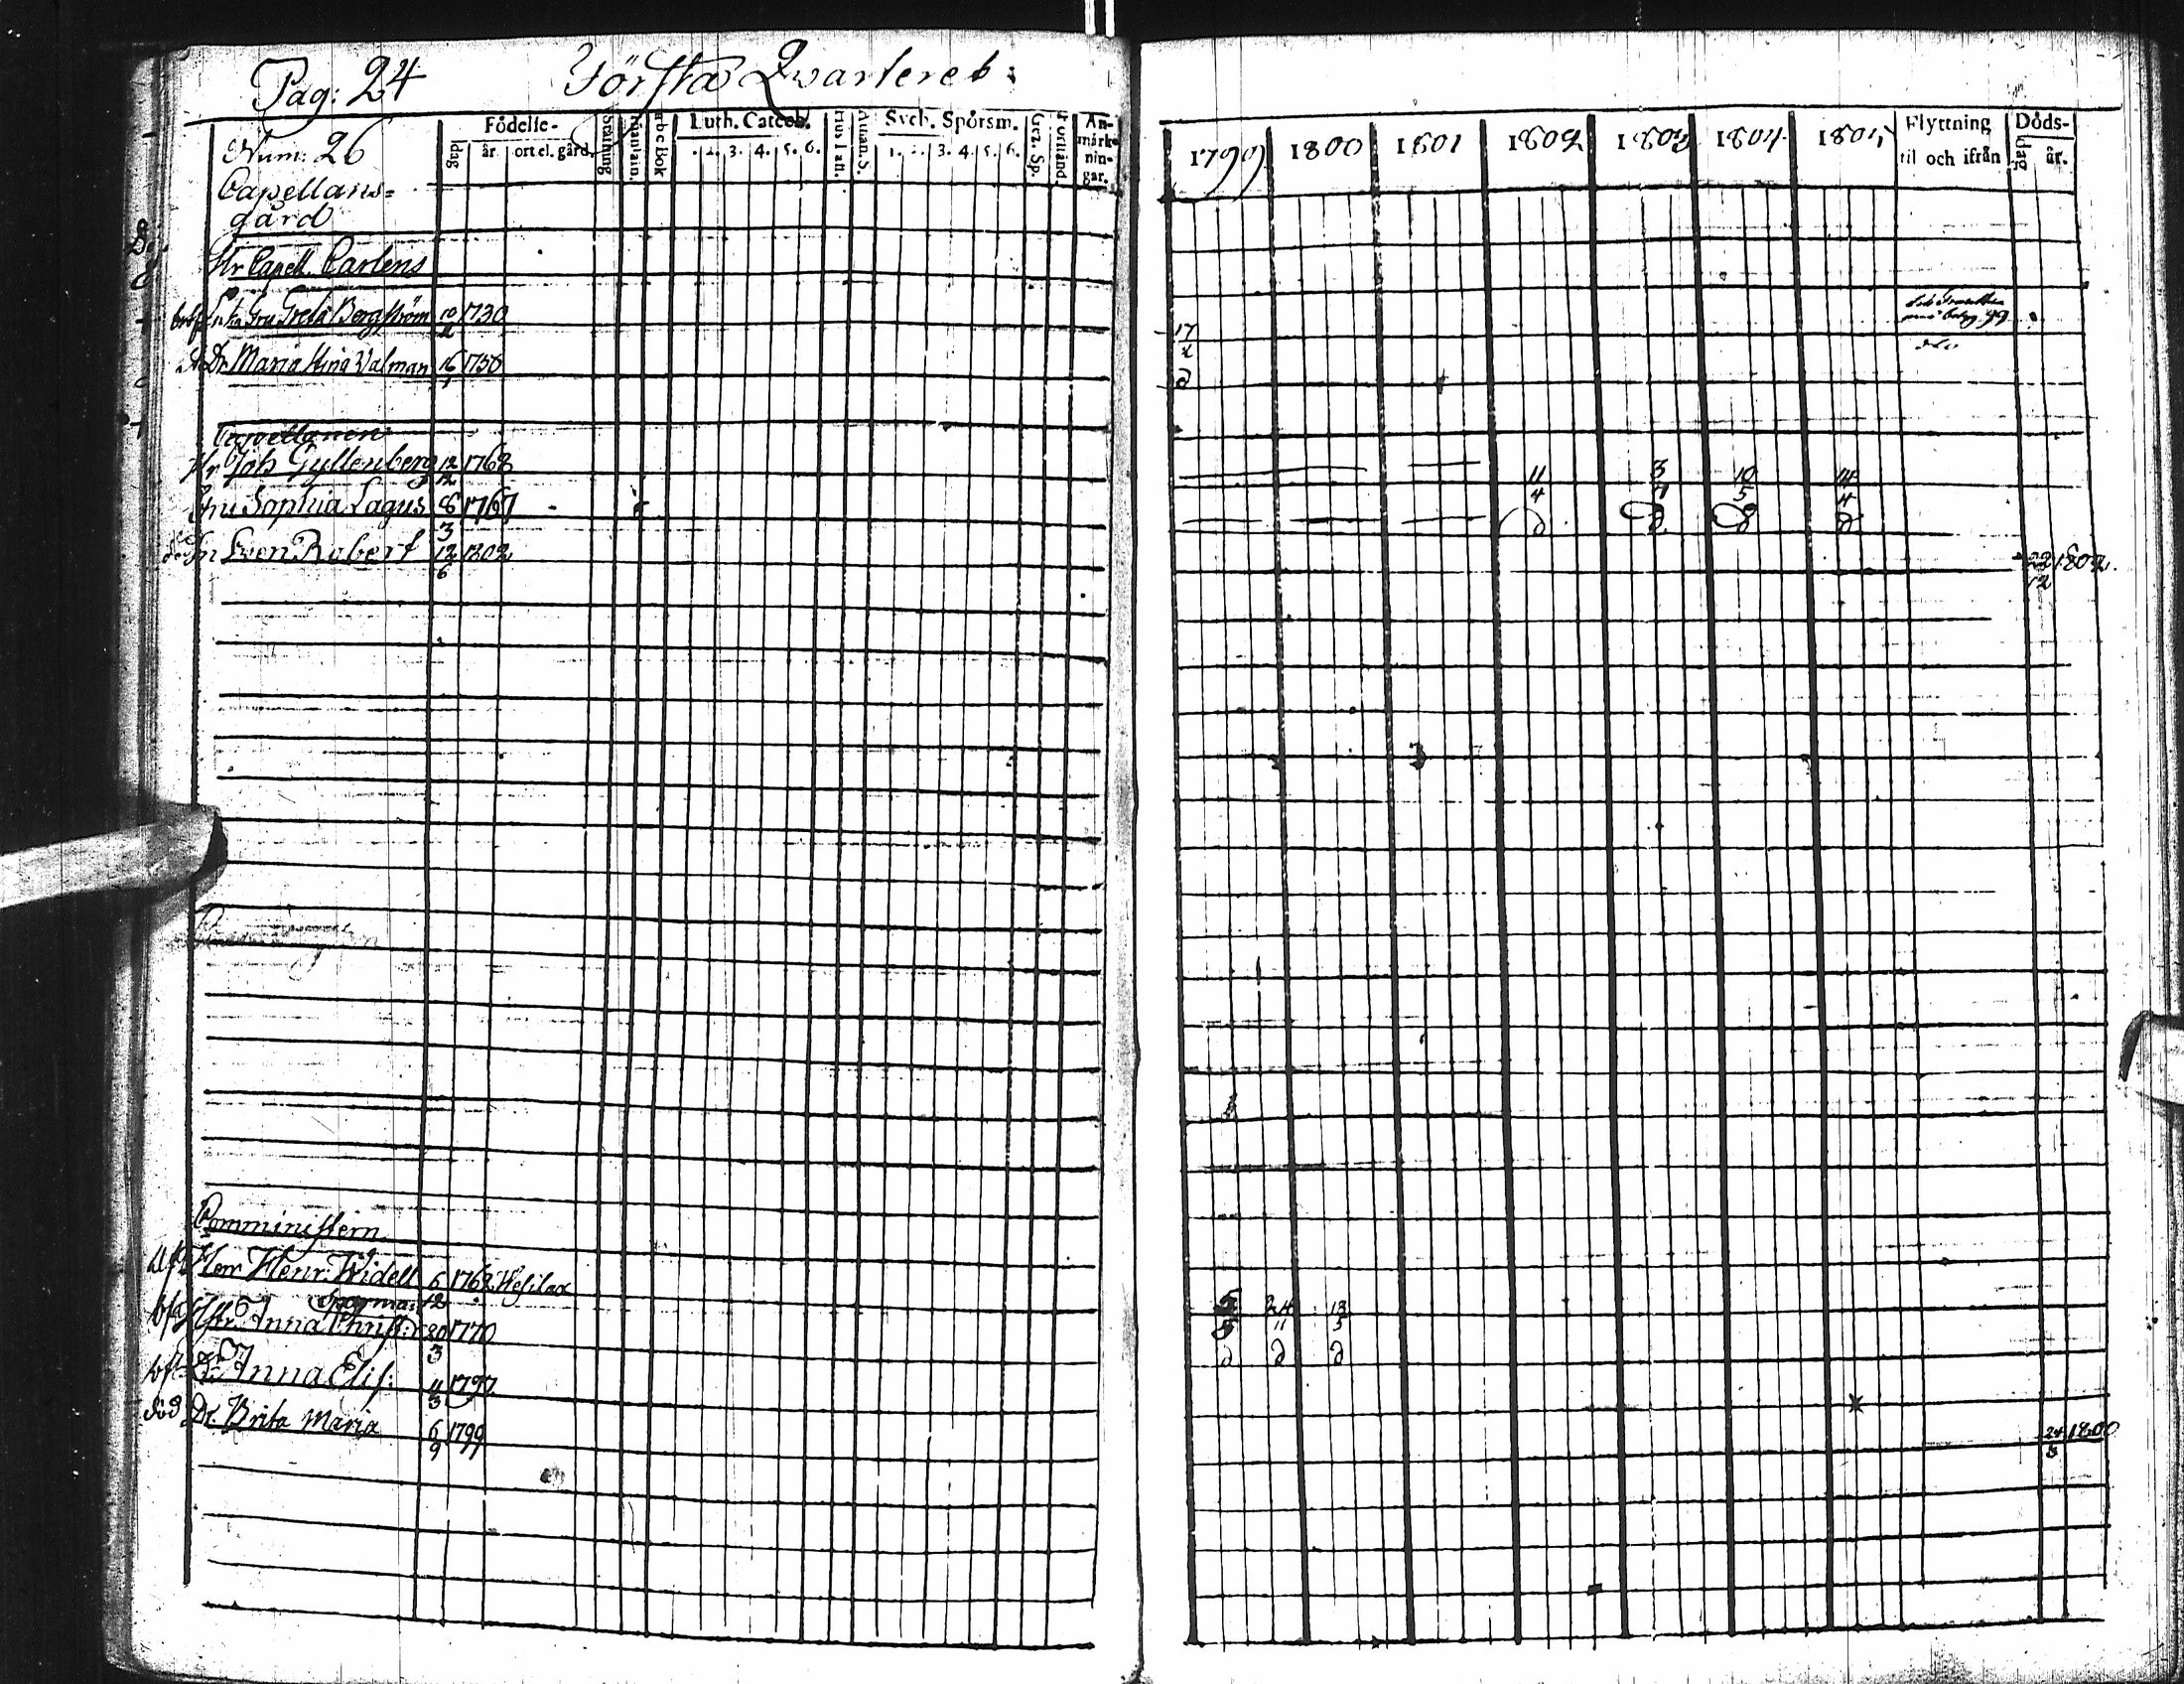 Pag: 24 Förſta Qvarteret:
Num: 26
Födelſe-
dag år. ort el. gård.
Stafning
abc Bok
Luth. Catech.
2. 3. 4. 5. 6.
Athan. S.
Sveb. Spörsm.
1. 2. 3. 4. 5. 6.
Gez. Sp.
An-
märk-
nin-
gar.
1799 1800 1801 1802 1803 1804 1805
Flyttning
til och ifrån
Döds-
dag år.
Capellans-
gård
Hr Capell. Carlens
Enka Fru Greta Bergſtröm 10 1730
17
Dr Maria Stina Valman 16/1 1756
Capellanen
Hr Joh Gyllenberg 12/12 1768 11/4 3/7 10/5 14/4
Fru Sophia Lagus 8/3 1767
Sn Sven Robert 12/6 1802 22/12 1802.
Comminiſtern
Herr Henr: Widell 6/12 1762 Heſilax
Hſtr Anna Chriſt: 20/3 1770 5/5 24/11 13/5
Dr Anna Eliſ: 11/3 1797
död Dr. Brita Maria 6/9 1799 24/3 1800